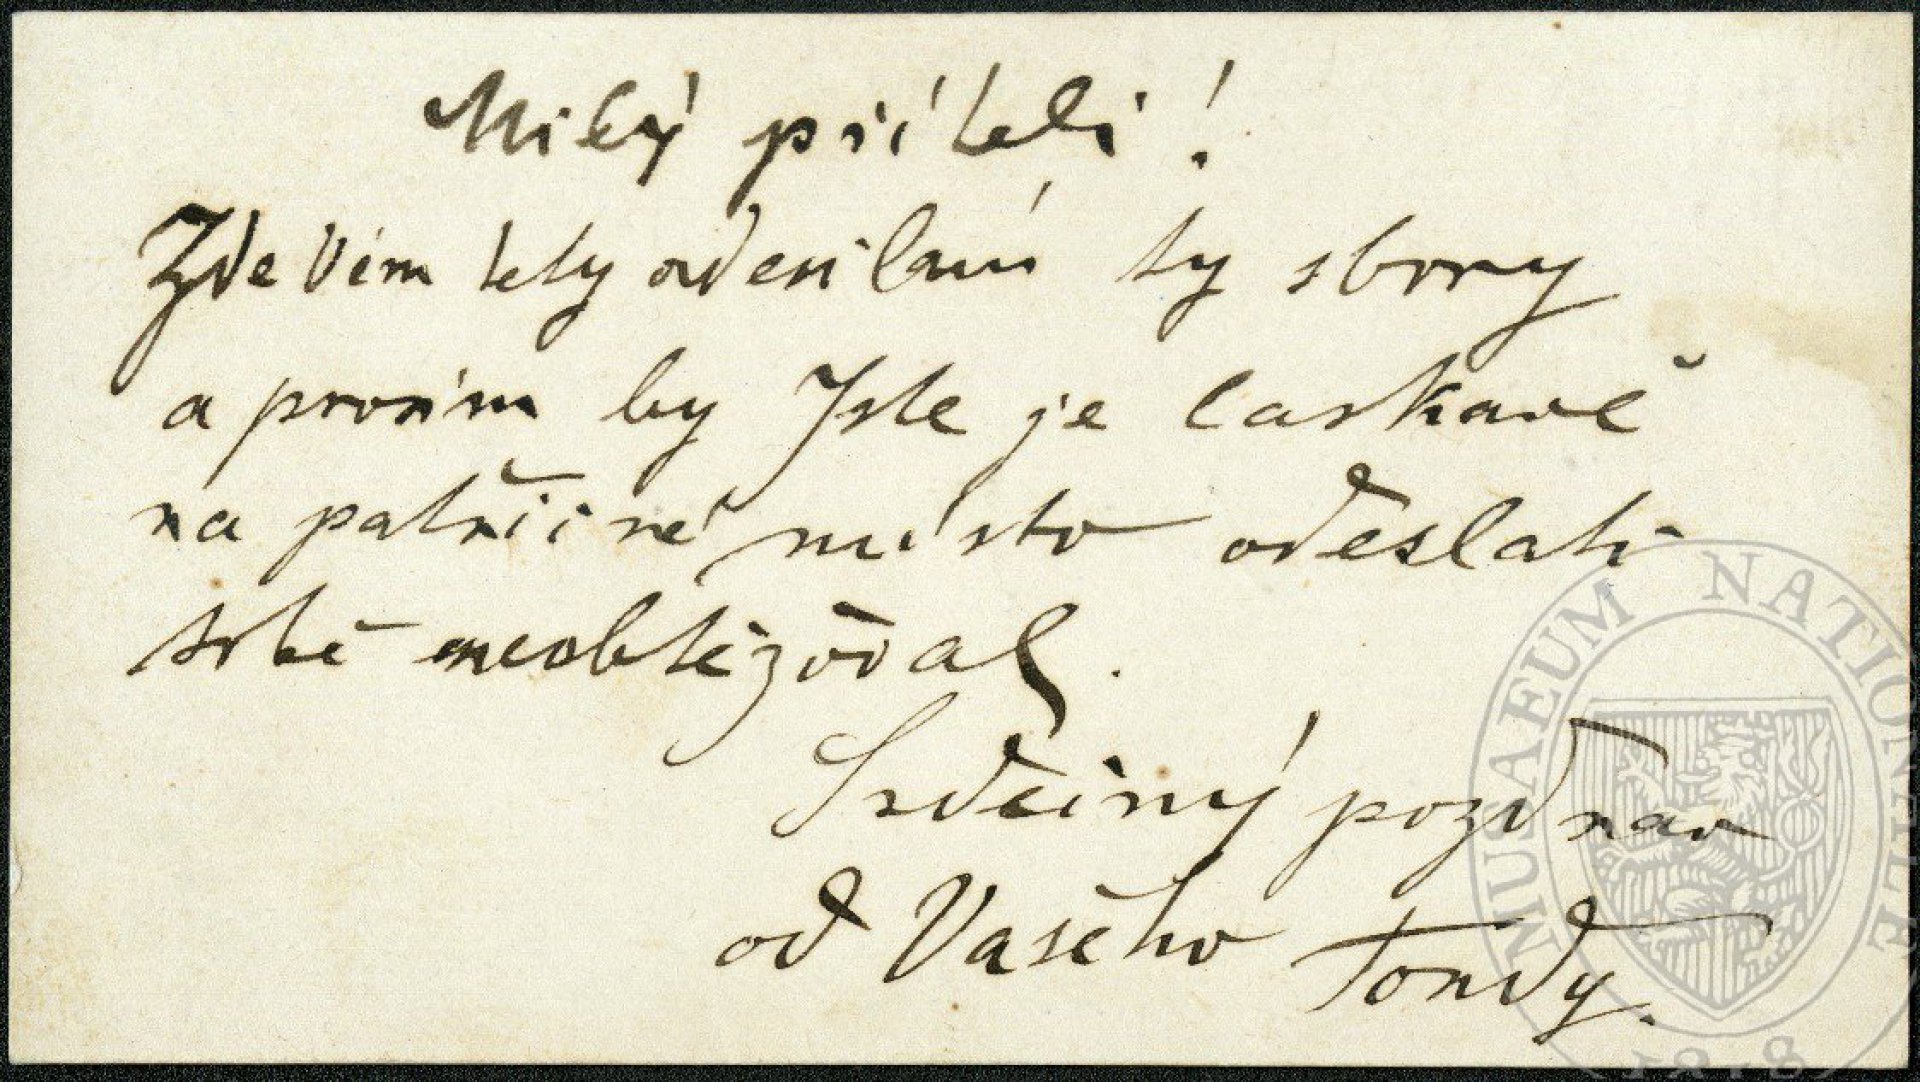 Milý příteli!
Zde Vám tedy odesílám ty sbory
a prosím by jste je laskavě
na patřičné místo odeslati
sobě neobtěžoval.
Srdečný pozdrav
od Vašeho Tondy.
MUSAEUM NATIONALE
1818